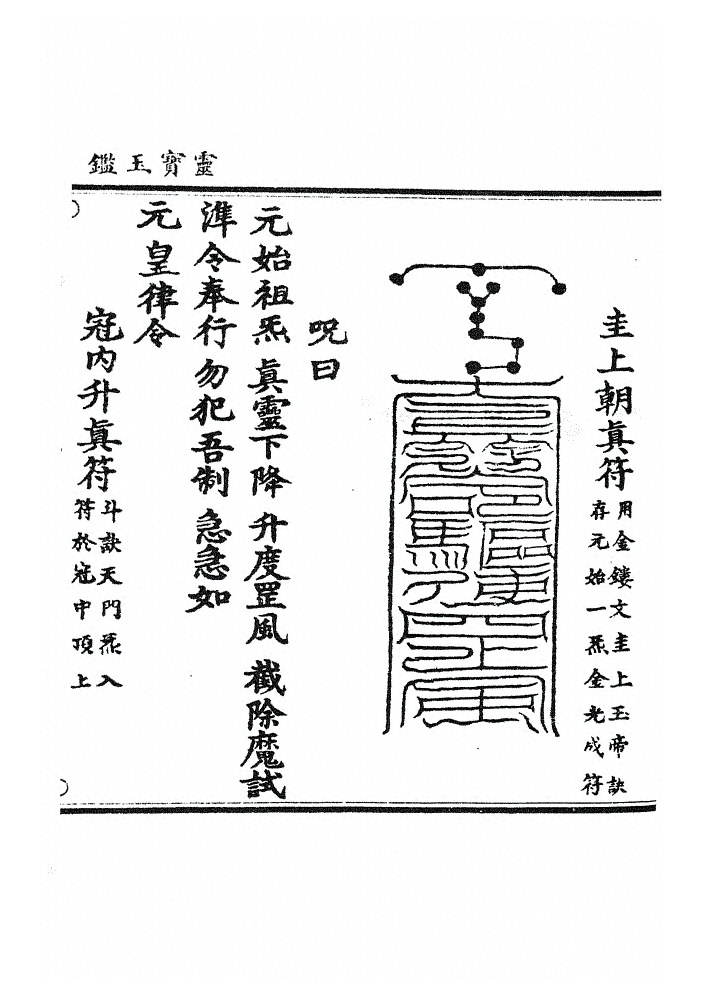 靈寶玉鑑
圭上朝眞符
用金鏤文圭上玉帝訣
存元始一炁金光成符
呪曰
元始祖炁 眞靈下降 升度罡風 截除魔試
準令奉行 勿犯吾制 急急如
元皇律令
冠內升眞符
斗訣天門炁入
符於冠中頂上